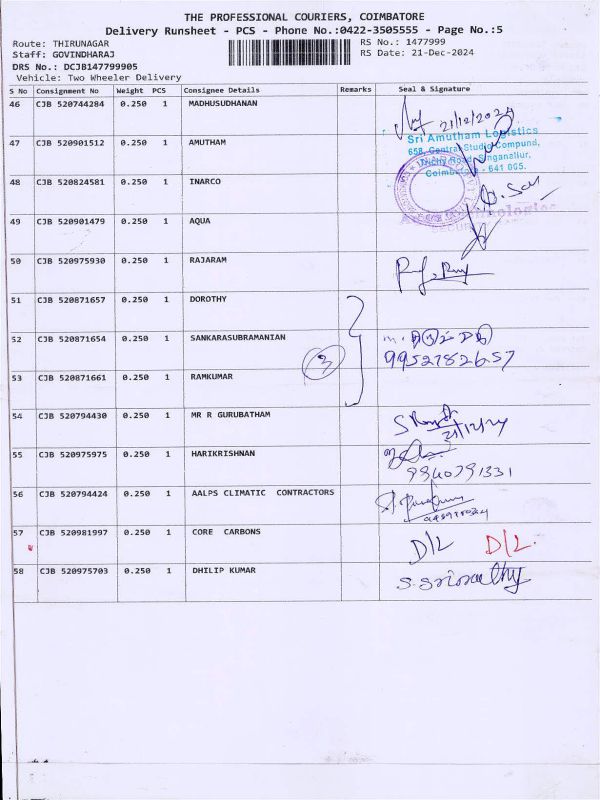 THE PROFESSIONAL COURIERS, COIMBATORE
Delivery Runsheet - PCS - Phone No.:0422-3505555 - Page No.:5
Route: THIRUNAGAR RS No.: 1477999
Staff: GOVINDHARAJ RS Date: 21-Dec-2024
DRS No.: DCJB147799905
Vehicle: Two Wheeler Delivery
S No Consignment No Weight PCS Consignee Details Remarks Seal & Signature
46 CJB 520744284 0.250 1 MADHUSUDHANAN
21/12/2024
47 CJB 520901512 0.250 1 AMUTHAM
Sri Amutham Logistics
658, Central Studio Compund,
Trichy Road, Singanallur,
Coimbatore - 641 005.
48 CJB 520824581 0.250 1 INARCO
49 CJB 520901479 0.250 1 AQUA
50 CJB 520975930 0.250 1 RAJARAM
51 CJB 520871657 0.250 1 DOROTHY
52 CJB 520871654 0.250 1 SANKARASUBRAMANIAN
3
9952782657
53 CJB 520871661 0.250 1 RAMKUMAR
54 CJB 520794430 0.250 1 MR R GURUBATHAM
21/12/24
55 CJB 520975975 0.250 1 HARIKRISHNAN
9940791331
56 CJB 520794424 0.250 1 AALPS CLIMATIC CONTRACTORS
57 CJB 520981997 0.250 1 CORE CARBONS
D/L D/L.
58 CJB 520975703 0.250 1 DHILIP KUMAR